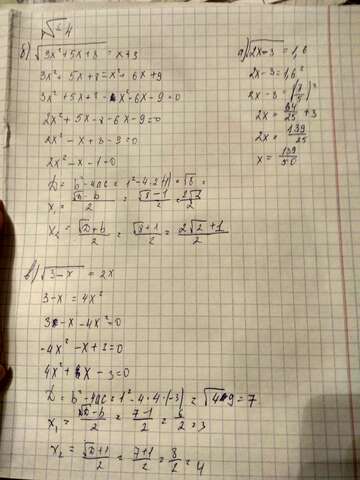 √4
б) √3x²+5x+8 = x+3
3x²+5x+8=x²+6x+9
3x²+5x+8-x²-6x-9=0
2x²+5x-8-6x-9=0
2x²-x+8-9=0
2x²-x-1=0
D=b²-4ac=1²-4·2·(-1)=√8=
x₁=(√D-b)/2=(√8-1)/2=
x₂=(√D+b)/2=(√8+1)/2=(2√2+1)/2
а) √2x-3=1,6
2x-3=1,6²
2x-3=(8/5)²
2x=64/25+3
2x=139/25
x=139/50
в) √3-x = 2x
3-x=4x²
3-x-4x²=0
-4x²-x+3=0
4x²+x-3=0
D=b²-4ac=1²-4·4·(-3)=√49=7
x₁=(√D-b)/2=(7-1)/2=6/2=3
x₂=(√D+1)/2=(7+1)/2=8/2=4